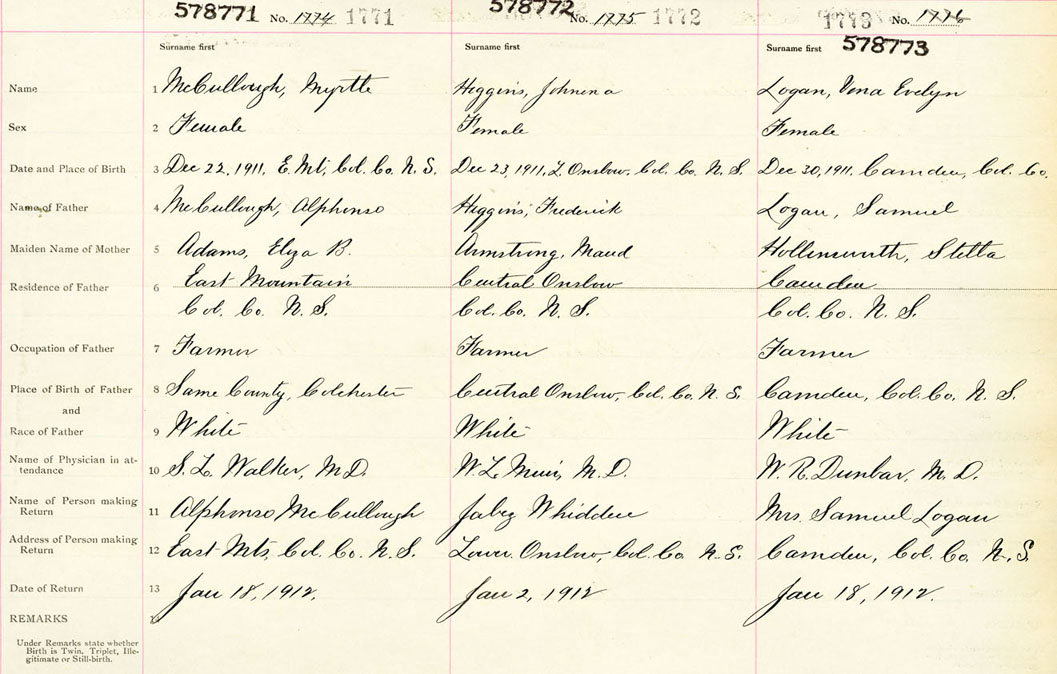 578771 No. 1774 1771 578772 No. 1775 1772 1773 No. 1776
578773
Surname first Surname first Surname first
Name 1 McCullough, Myrtle Higgins, Johnena Logan, Vena Evelyn
Sex 2 Female Female Female
Date and Place of Birth 3 Dec 22, 1911, E. Mt, Col. Co. N. S. Dec 23, 1911, L Onslow, Col. Co. N. S. Dec 30, 1911, Camden, Col. Co.
Name of Father 4 McCullough, Alphonso Higgins, Frederick Logan, Samuel
Maiden Name of Mother 5 Adams, Elya B. Armstrong, Maud Hollensworth, Stella
Residence of Father 6 East Mountain Central Onslow Camden
Col. Co. N. S. Col. Co. N. S. Col. Co. N. S.
Occupation of Father 7 Farmer Farmer Farmer
Place of Birth of Father 8 Same County, Colchester Central Onslow, Col. Co. N. S. Camden, Col. Co. N. S.
and
Race of Father 9 White White White
Name of Physician in at-
tendance 10 S. L. Walker, M.D. W. L. Muir, M. D. W. R. Dunbar, M. D.
Name of Person making
Return 11 Alphonso McCullough Jabez Whidden Mrs. Samuel Logan
Address of Person making
Return 12 East Mts, Col. Co. N. S. Lower Onslow, Col. Co. N. S. Camden, Col. Co. N. S.
Date of Return 13 Jan 18, 1912. Jan 2, 1912 Jan 18, 1912.
REMARKS
Under Remarks state whether
Birth is Twin, Triplet, Ille-
gitimate or Still-birth.